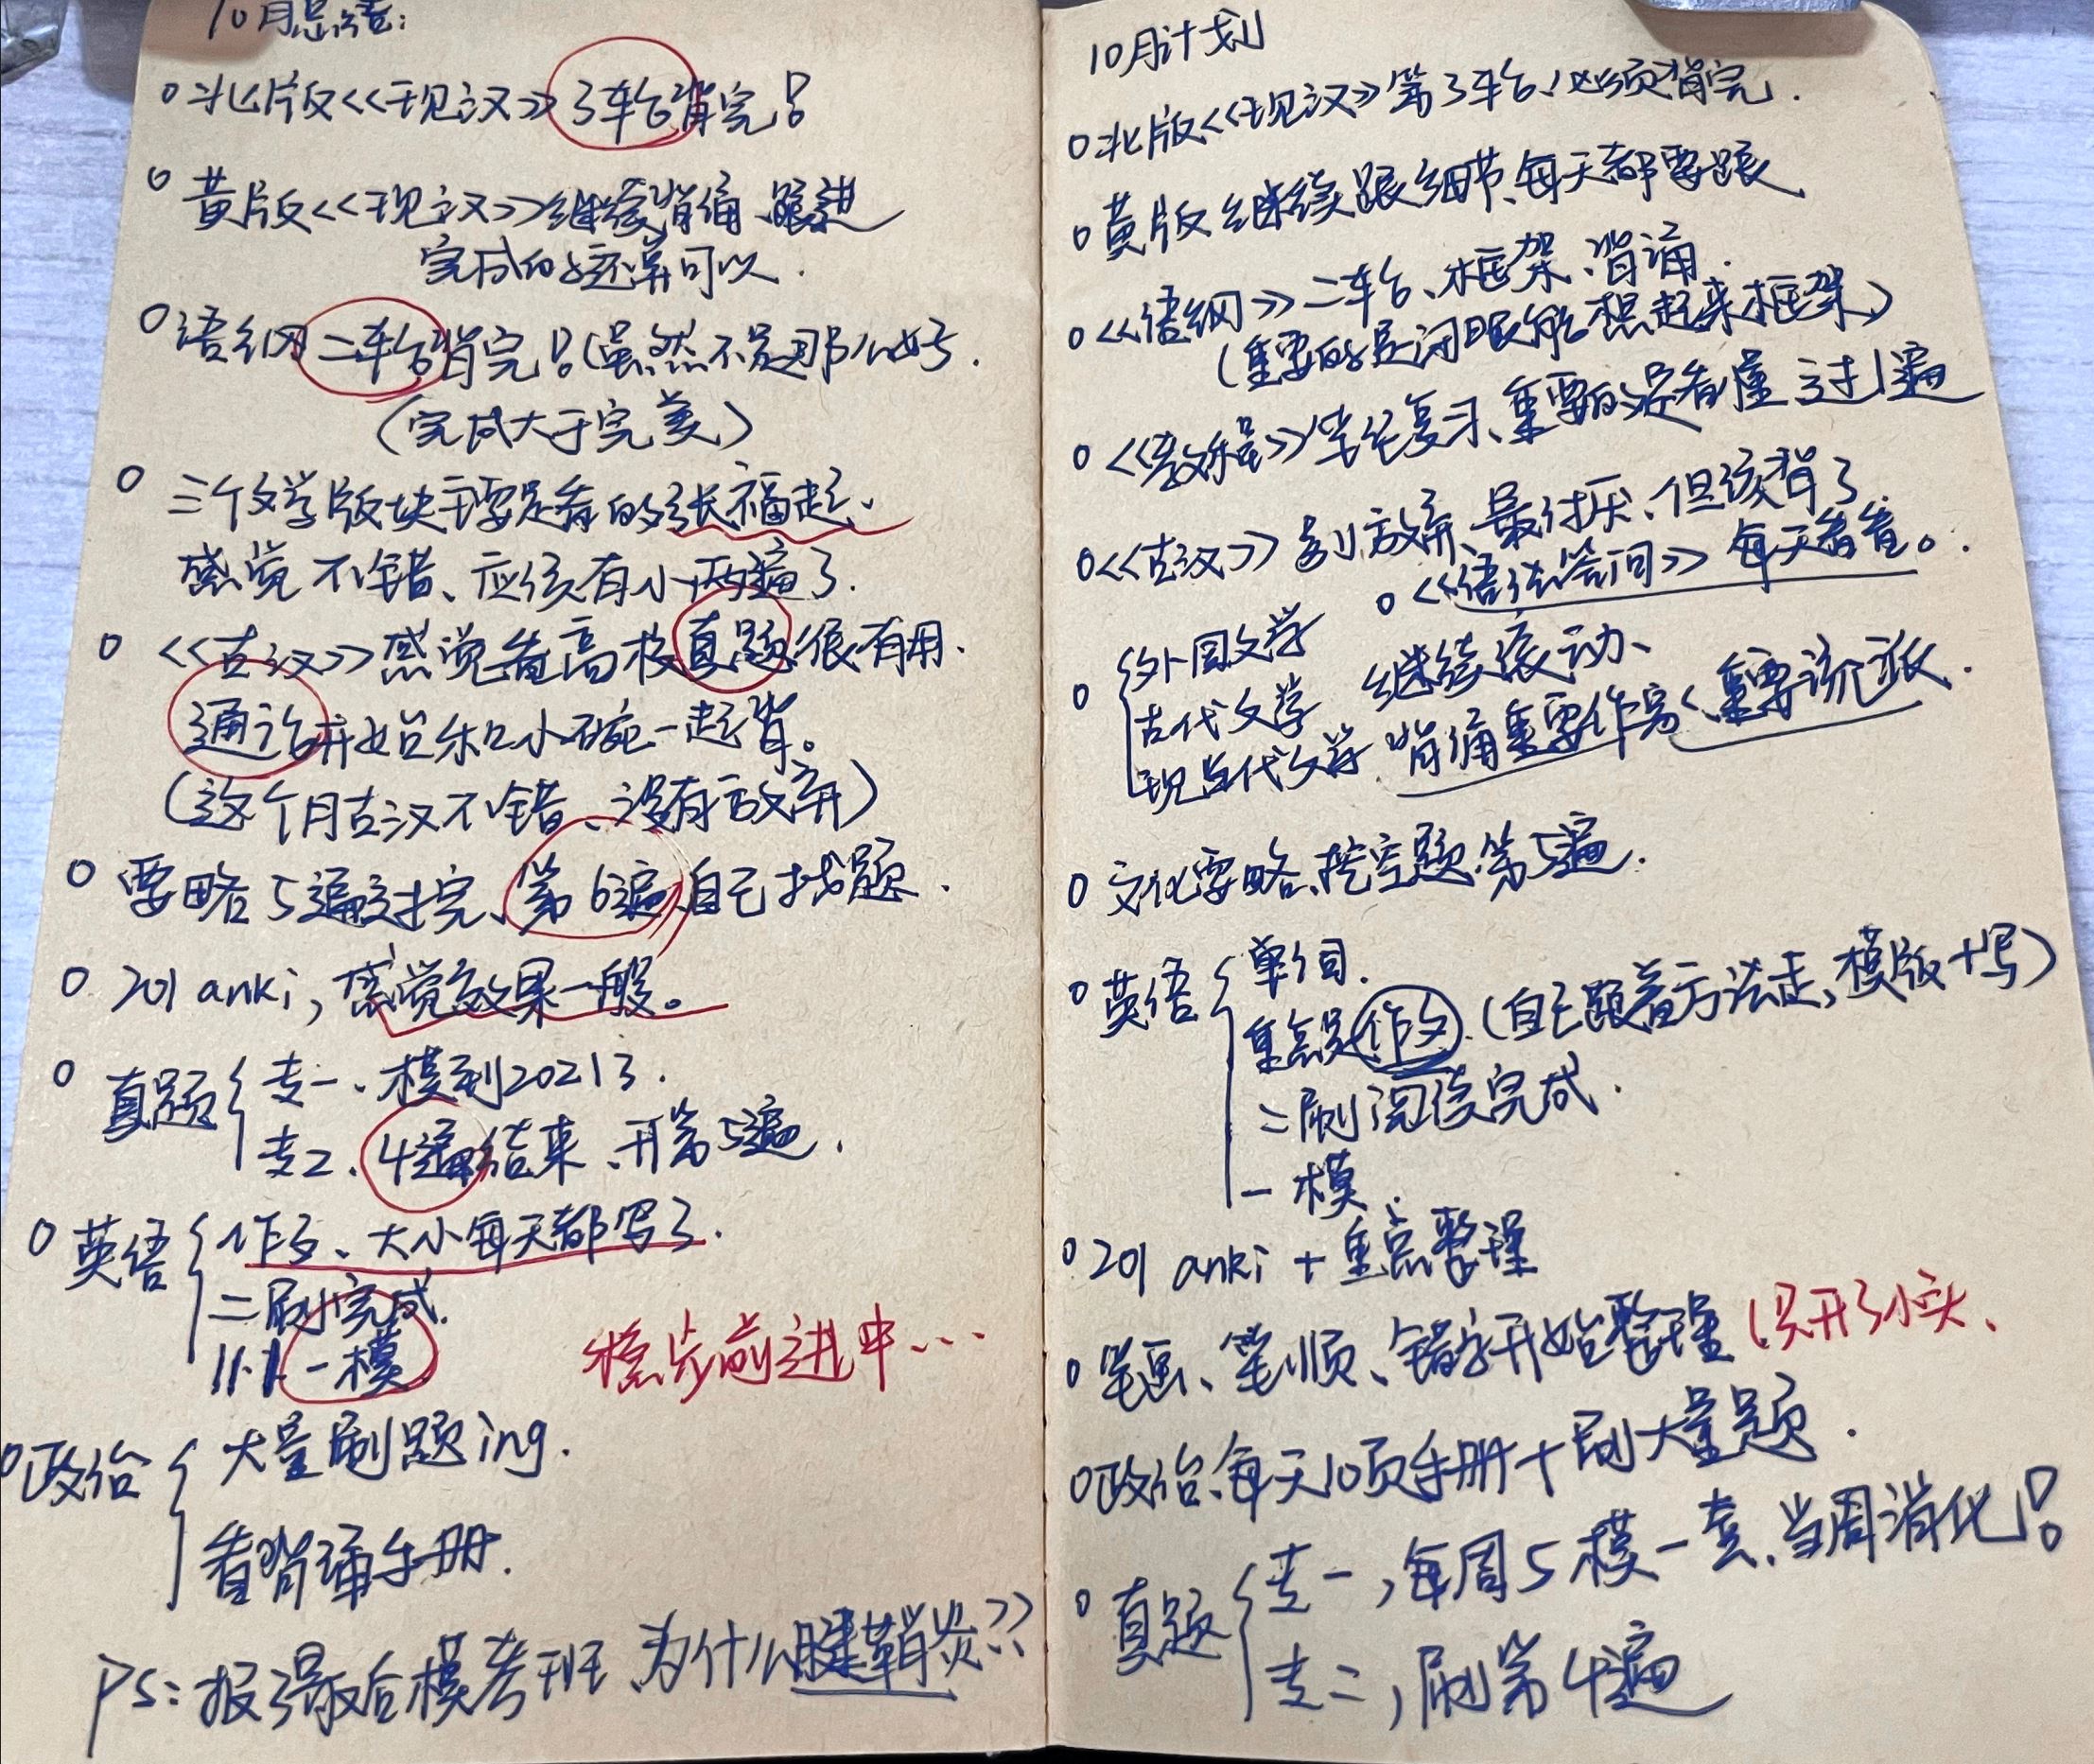 10月总结：
○ 北版<<现汉>> 3轮背完！
○ 黄版<<现汉>>继续背诵、跟进
完成的还算可以.
○ 语纲二轮背完！(虽然不是那么好.
(完成大于完美)
○ 三个文学版块主要是看的张福起、
感觉不错、应该有小两遍了.
○ <<古汉>>感觉看高校真题很有用、
通论开始和小碗一起背。
(这个月古汉不错、没有放弃)
○ 要略5遍过完、第6遍自己找题.
○ 201 anki, 感觉效果一般。
○ 真题 { 专一、模到2021了.
专二、4遍结束、开第5遍.
○ 英语 { 作文、大小每天都写了.
二刷完成.
11.1 一模
稳步前进中...
○ 政治 { 大量刷题ing.
看背诵手册.
PS: 报了最后模考班、为什么腱鞘炎??
10月计划
○ 北版<<现汉>>第3轮、必须背完.
○ 黄版继续跟细节、每天都要跟
○ <<语纲>>二轮、框架、背诵.
(重要的是闭眼能想起来框架)
○ <<教程>> 复习、重要的是看懂过1遍
○ <<古汉>>别放弃、最讨厌、但该背了.
○ <<语法答问>>每天看看。.
○ { 外国文学
古代文学 继续滚动、
现当代文学 背诵重要作家、重要流派.
○ 文化要略、挖空题第5遍.
○ 英语 { 单词.
重点是作文. (自己跟着方法走, 模版+写)
二刷阅读完成.
一模.
○ 201 anki + 重点整理
○ 笔画、笔顺、错字开始整理 (只开了小头、
○ 政治、每天10页手册+刷大量题.
○ 真题 { 专一, 每周5模一套、当周消化！
专二, 刷第4遍